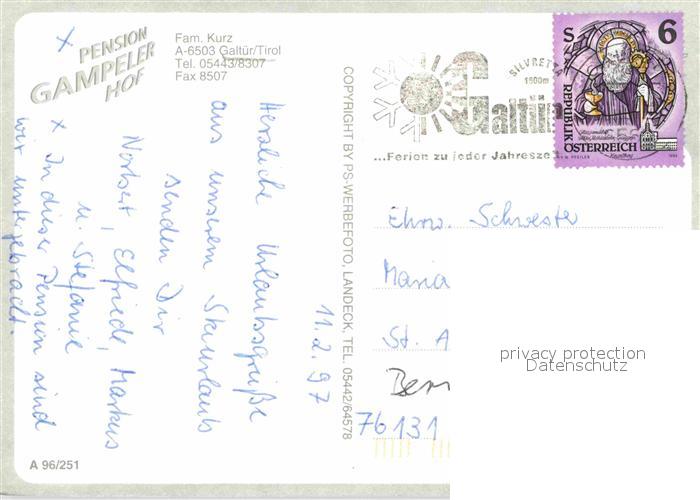 PENSION
GAMPELER
HOF
Fam. Kurz
A-6503 Galtür/Tirol
Tel. 05443/8307
Fax 8507
x
11.2.97
Herzliche Urlaubsgrüße
aus unserem Skiurlaub
senden Dir
Norbert, Elfriede, Markus
u. Stefanie
x In dieser Pension sind
wir untergebracht.
A 96/251
COPYRIGHT BY PS-WERBEFOTO, LANDECK, TEL. 05442/64578
SILVRETTA
1600m
Galtür
...Ferien zu jeder Jahresze
S 6
REPUBLIK
ÖSTERREICH
Ehrw. Schwester
Maria
St. A
Bern
76131
privacy protection
Datenschutz